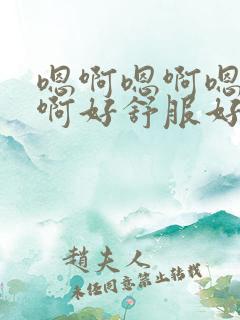 嗯啊嗯啊嗯
啊好舒服好
趙夫人
未经同意禁止转载